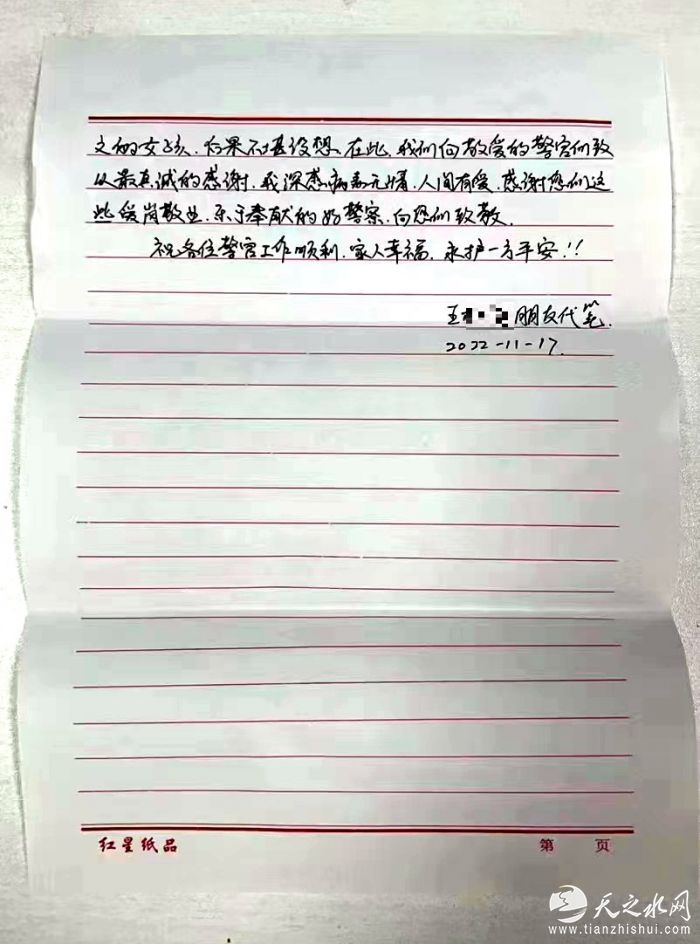 文的女孩、后果不堪设想、在此,我们向敬爱的警官们致
以最真诚的感谢.我深感病毒无情,人间有爱,感谢您们这
些爱岗敬业.乐于奉献的好警察.向您们致敬.
祝各位警官工作顺利.家人幸福,永护一方平安!!
王 朋友代笔.
2022-11-17.
红星纸品
第 页
天之水网
www.tianzhishui.com